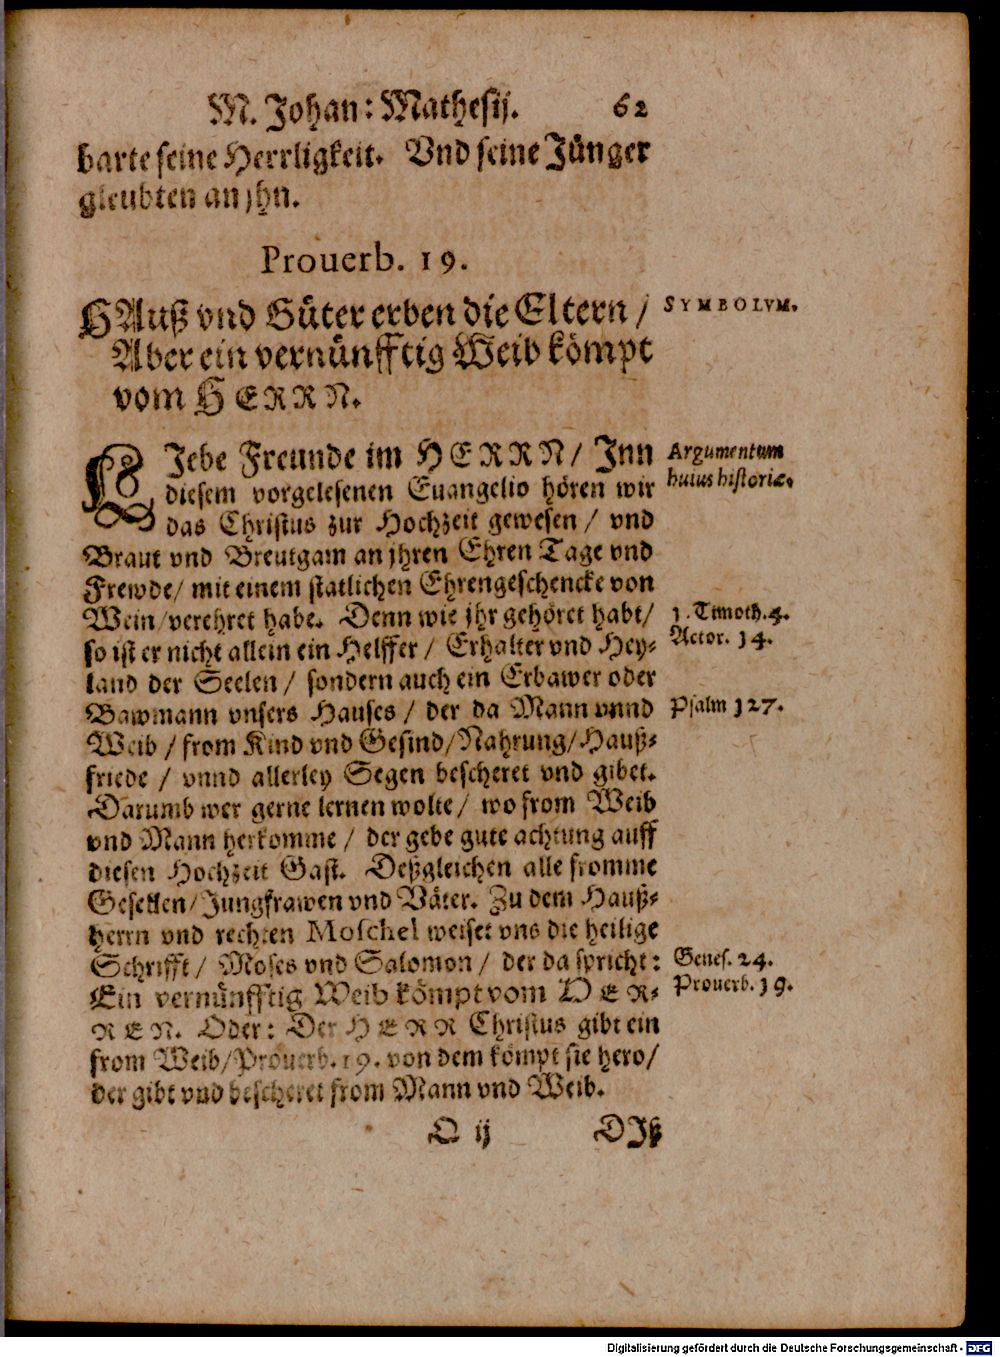 M. Johan: Mathesij. 62
barte seine Herrligkeit. Vnd seine Jünger
gleubten an jhn.
Prouerb. 19.
HAuß vnd Güter erben die Eltern / SYMBOLVM.
Aber ein vernünfftig Weib kömpt
vom HERRN.
LJebe Freunde im HERRN / Jnn Argumentum
diesem vorgelesenen Euangelio hören wir huius historiæ.
das Christus zur Hochzeit gewesen / vnd
Braut vnd Breutgam an jhren Ehren Tage vnd
Frewde / mit einem statlichen Ehrengeschencke von
Wein / verehret habe. Denn wie jhr gehöret habt / 1. Timoth. 4.
so ist er nicht allein ein Helffer / Erhalter vnd Hey- Actor. 14.
land der Seelen / sondern auch ein Erbawer oder
Bawmann vnsers Hauses / der da Mann vnnd Psalm 127.
Weib / from Kind vnd Gesind / Nahrung / Hauß-
friede / vnnd allerley Segen bescheret vnd gibet.
Darumb wer gerne lernen wolte / wo from Weib
vnd Mann herkomme / der gebe gute achtung auff
diesen Hochzeit Gast. Deßgleichen alle fromme
Gesellen / Jungfrawen vnd Väter. Zu dem Hauß-
herrn vnd rechten Moschel weiset vns die heilige
Schrifft / Moses vnd Salomon / der da spricht: Genes. 24.
Ein vernünfftig Weib kömpt vom HER- Prouerb. 19.
REN. Oder: Der HERR Christus gibt ein
from Weib / Prouerb. 19. von dem kömpt sie hero /
der gibt vnd bescheret from Mann vnd Weib.
Q ij DJß
Digitalisierung gefördert durch die Deutsche Forschungsgemeinschaft - DFG